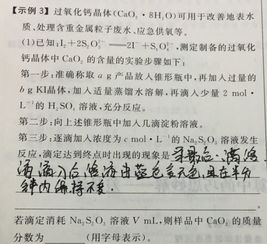 【示例3】过氧化钙晶体(CaO₂·8H₂O)可用于改善地表水
质、处理含重金属粒子废水、应急供氧等。
(1)已知:I₂+2S₂O₃²⁻══2I⁻+S₄O₆²⁻,测定制备的过氧化
钙晶体中CaO₂的含量的实验步骤如下:
第一步:准确称取a g产品放入锥形瓶中,再加入过量的
b g KI晶体,加入适量蒸馏水溶解,再滴入少量2 mol·
L⁻¹的H₂SO₄溶液,充分反应。
第二步:向上述锥形瓶中加入几滴淀粉溶液。
第三步:逐滴加入浓度为c mol·L⁻¹的Na₂S₂O₃溶液发生
反应,滴定达到终点时出现的现象是 最后一滴溶
滴入后溶液由蓝色变无色,且在半分
钟内保持不变.
若滴定消耗Na₂S₂O₃溶液V mL,则样品中CaO₂的质量
分数为 (用字母表示)。